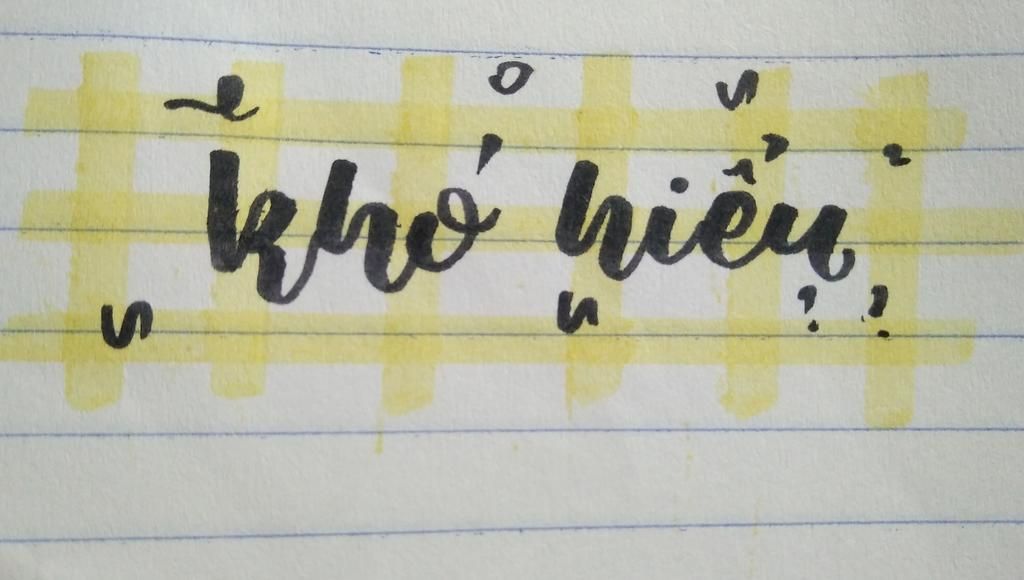 khó hiểu
? ?